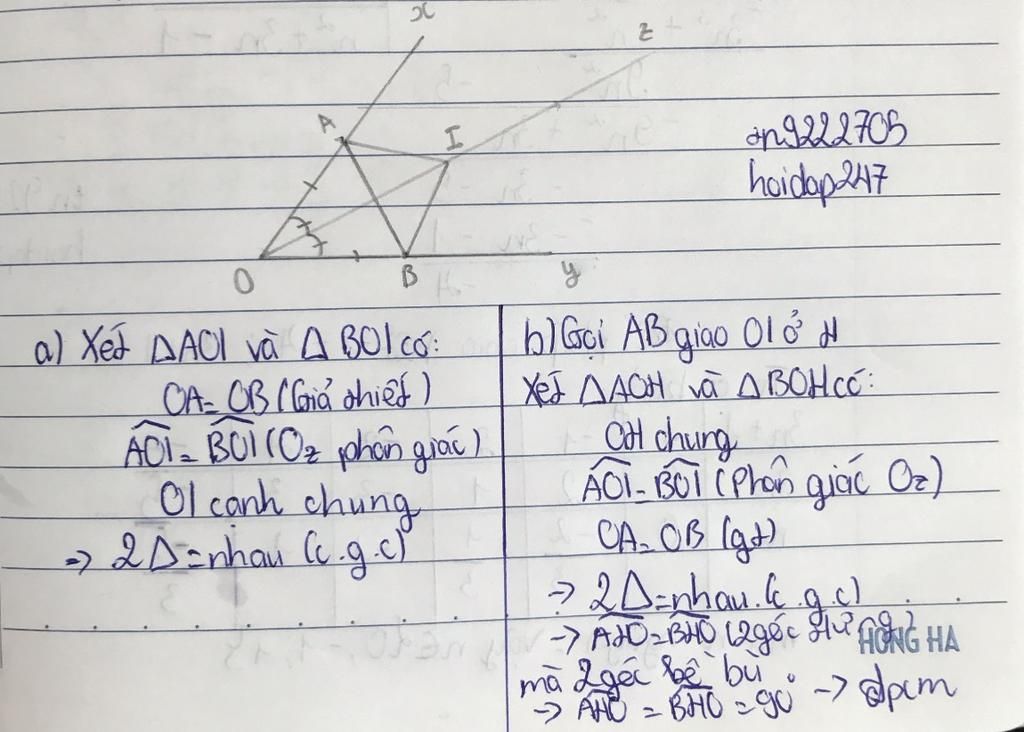 x
z
A
I
O
B
y
tn9222705
hoidap247
a) Xét ΔAOI và ΔBOI có:
OA = OB (Giả thiết)
AOI = BOI (Oz phân giác)
OI cạnh chung
→ 2Δ = nhau (c.g.c)
b) Gọi AB giao OI ở H
Xét ΔAOH và ΔBOH có:
OH chung
AOI = BOI (Phân giác Oz)
OA = OB (gt)
→ 2Δ = nhau (c.g.c)
→ AHO = BHO (2 góc
HONG HA
mà 2 góc kề bù
→ AHO = BHO = 90° → đpcm